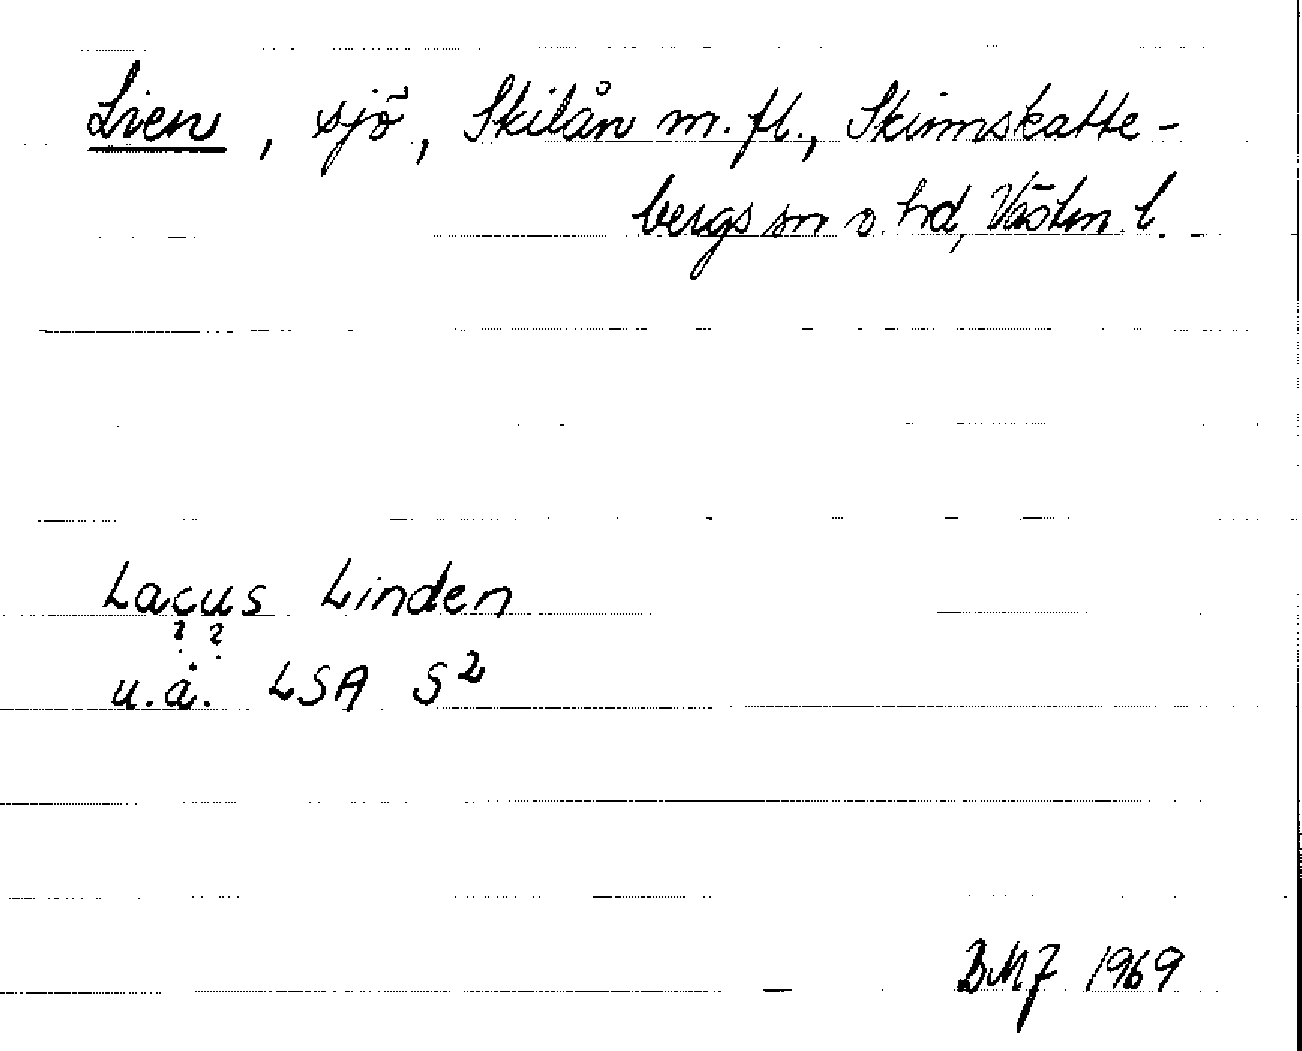 Lien, sjö, Skilån m. fl., Skinnskatte-
bergs sn o hd, Västm l.
Lacus Linden
? ?
u.å. LSA S2
BMJ 1969